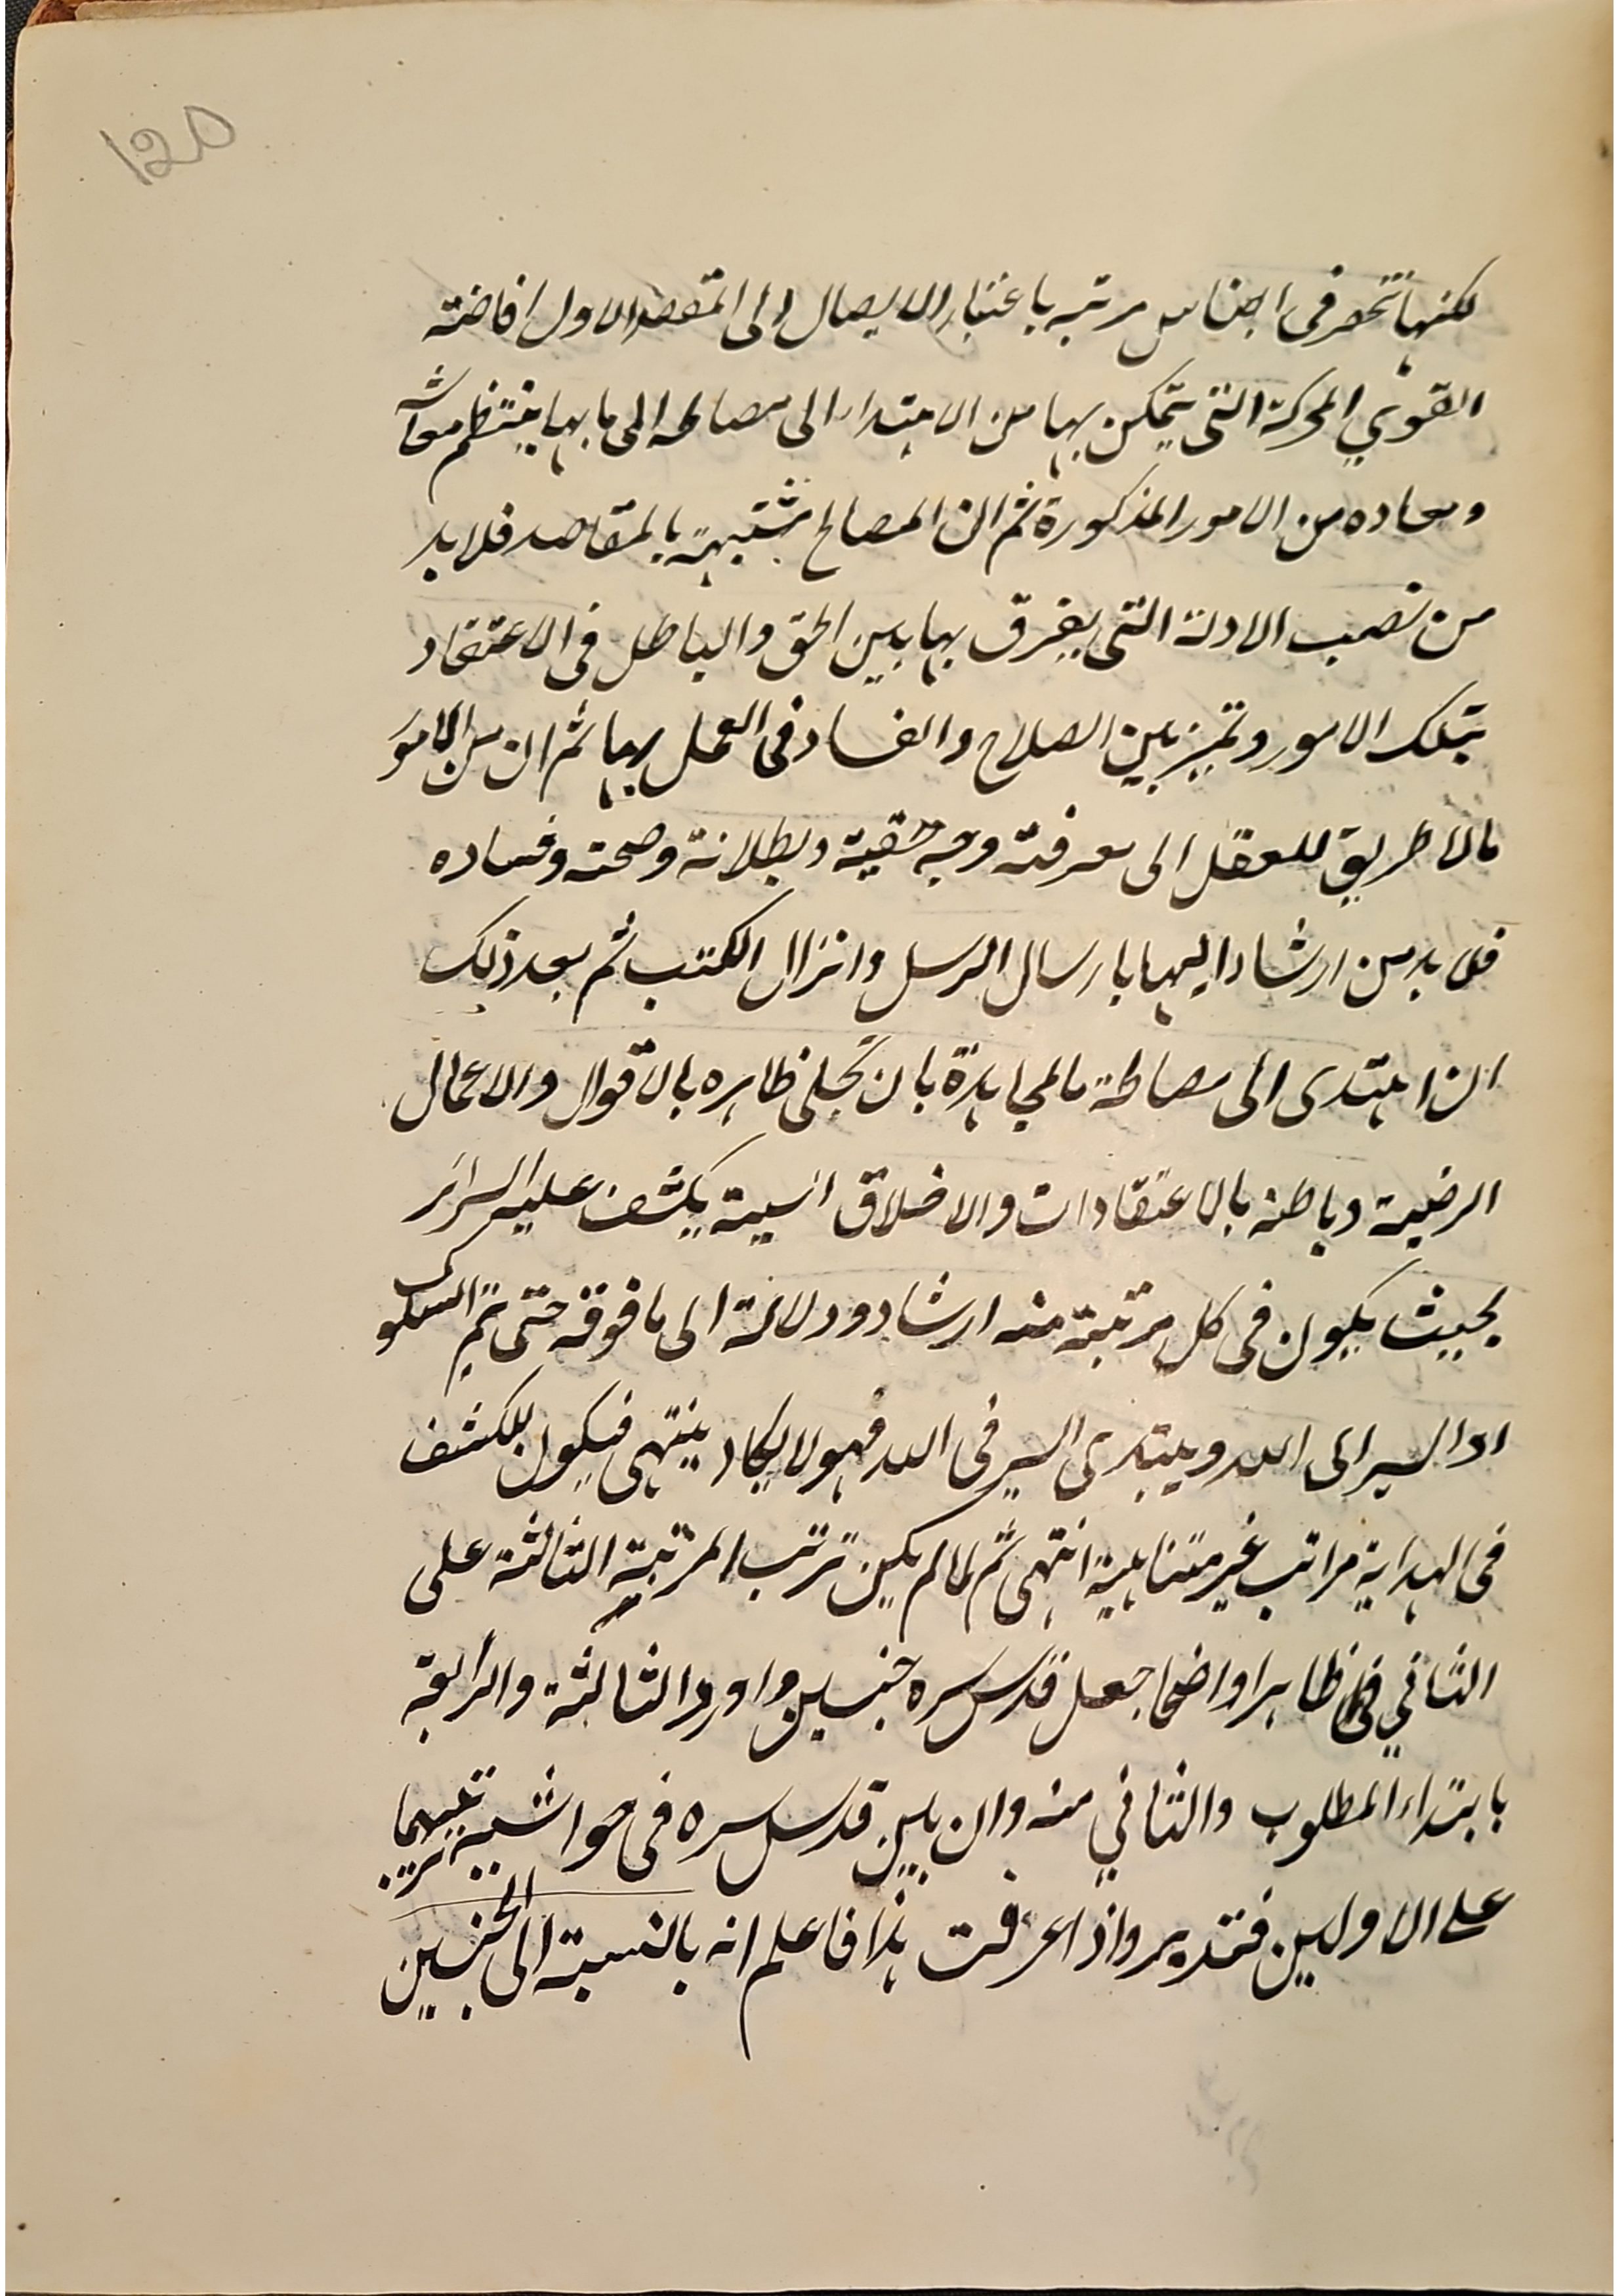 120
لكنها تنحصر فى اجناس مرتبه باعتبار الايصال الى المقصد الاول افاضته
القوي المحركة التى يتمكن بها من الاهتداء الى مصالحه الى ما بها ينتظم معاشه
ومعاده من الامور المذكورة ثم ان المصالح مشتبهة بالمقاصد فلا بد
من نصب الادلة التى يفرق بها بين الحق والباطل فى الاعتقاد
بتلك الامور وتميز بين الصلاح والفساد فى العمل بها ثم ان من الامور
مالا طريق للعقل الى معرفته وجه حقية وبطلانة وصحته وفساده
فلا بد من ارشاد اليها بارسال الرسل وانزال الكتب ثم بعد ذلك
ان اهتدى الى مصالحة مالمجاهدة بان تحلى ظاهره بالاقوال والاعمال
الرضية وباطنه بالاعتقادات والاخلاق السية يكشف عليه السرائر
بحيث يكون فى كل مرتبة منه ارشاد ودلالة الى ما فوقه حتى تم السلوك
ادا السير الى الله ويبتدى السير فى الله فهو لا يكاد ينتهى فيكون للكشف
فى الهداية مراتب غير متناهية انتهى ثم لما لم يكن ترتب المرتبة الثالثة على
الثاني ظاهرا واضحا جعل قدس سره جنسين واورد الثالثة والرابعة
بابتداء المطلوب والثاني منه وان بين قدس سره فى حواشيه ترتيبهما
على الاولين فتدبر واذا عرفت هذا فاعلم انه بالنسبة الى الجنسين